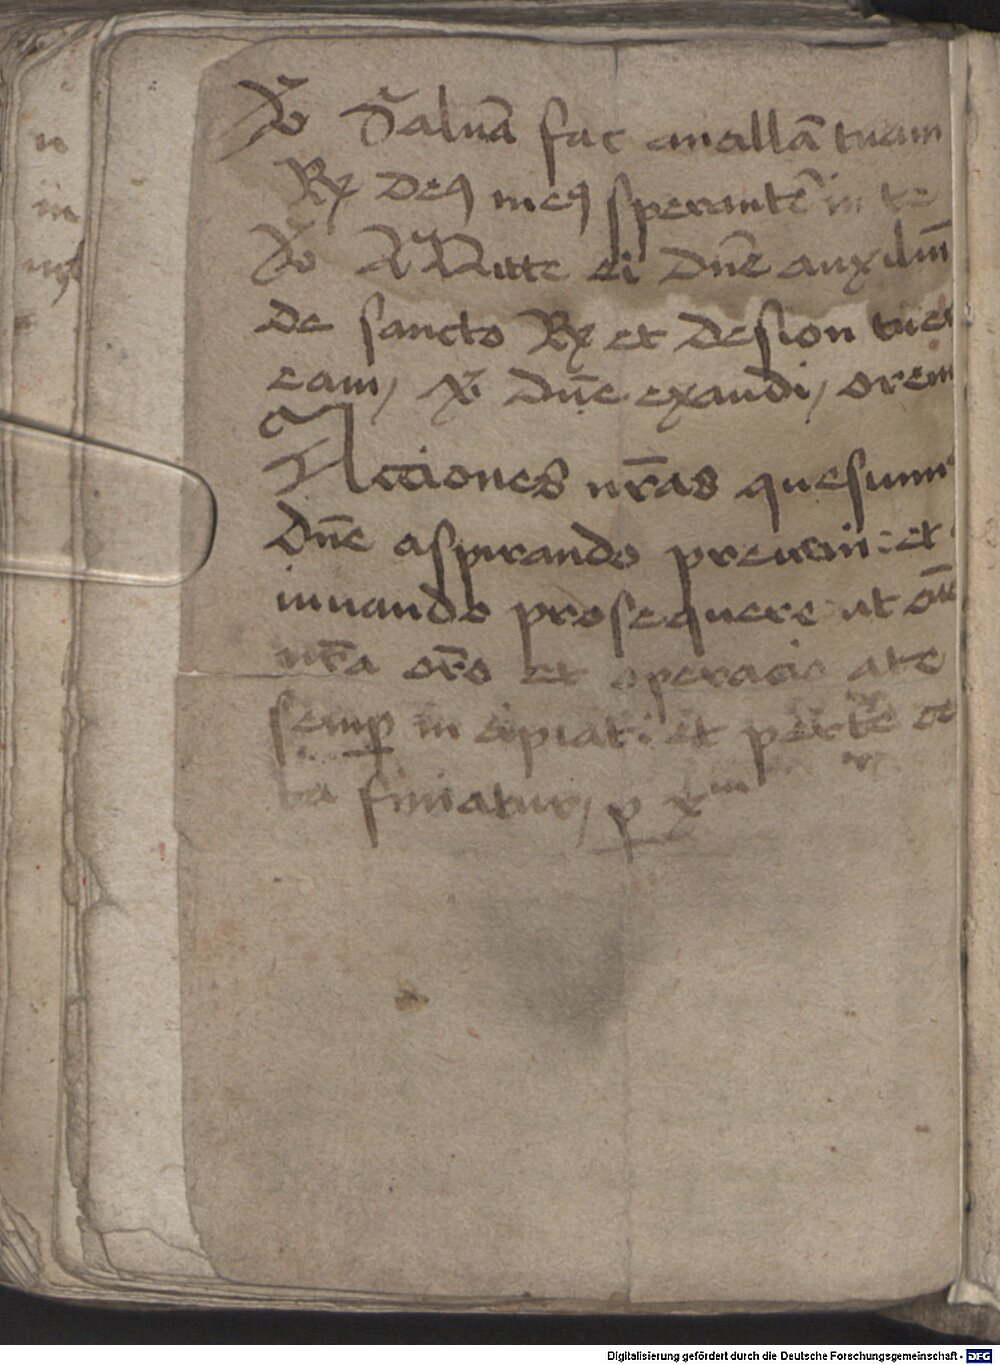 V̄ Saluā fac ancillā tuam
R̄ deꝰ meꝰ sperantē in te
V̄ Mitte ei dn̄e auxiliū
de sancto R̄ et de sion tue
eam / V̄ dn̄e exaudi / orem
Acciones nr̄as quesumꝰ
dn̄e aspirando preueni: et
iuuando prosequere ut oīs
nr̄a orō et operacio a te
semꝑ incipiat: et per te ce
ta finiatur / ꝑ xm
Digitalisierung gefördert durch die Deutsche Forschungsgemeinschaft - DFG